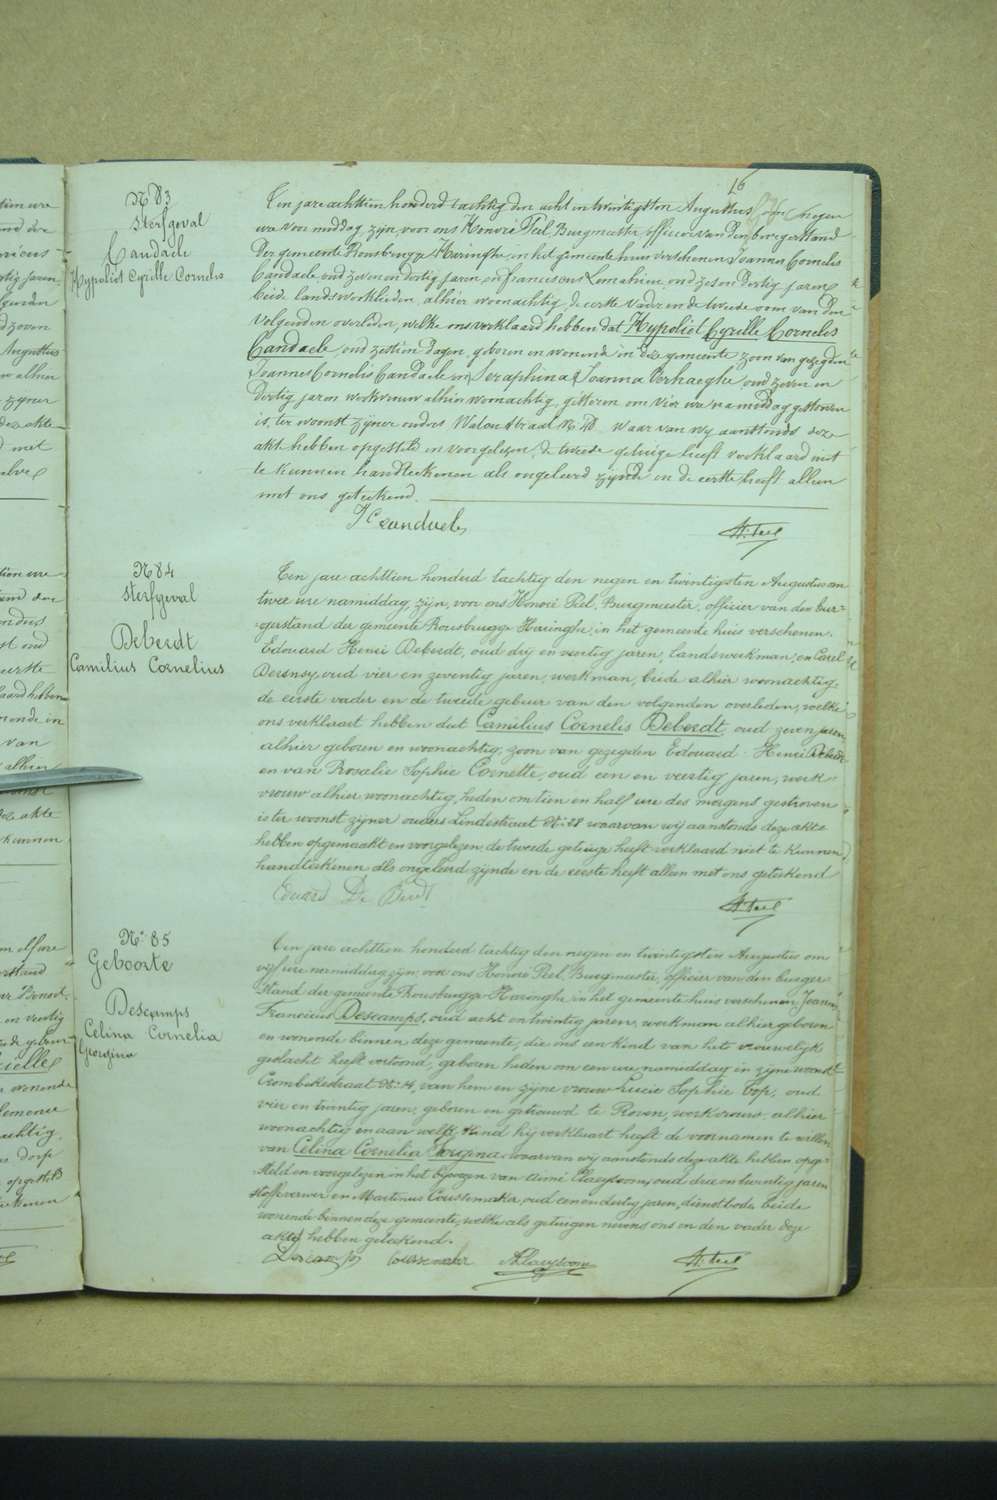 16
N 83
Sterfgeval
Candaele
Hypoliet Cyrille Cornelis
Ten jare achttien honderd tachtig den acht en twintigsten Augustus om negen
ure voor middag, zijn, voor ons Honoré Peel, Burgmeester, officier van den burgerstand
Der gemeente Rousbrugge Haringhe in het gemeente huis verschenen Joannes Cornelis
Candaele oud zeven en dertig jaren, en franciscus Lemahieu oud zes en dertig jaren
beide landswerklieden, alhier woonachtig de eerste vader en de tweede oom van den
volgenden overleden, welke ons verklaard hebben dat Hypoliet Cyrille Cornelis
Candaele oud zestien dagen, geboren en wonende in deze gemeente zoon van gezegden
Joannes Cornelis Candaele en Seraphina Joanna Verhaeghe oud zeven en
Dertig jaren werkvrouw alhier woonachtig, gisteren om vier ure namiddag gestorven
is, ter woonst zijner ouders Walestraat N. 40. Waarvan wij aanstonds deze
akt hebben opgesteld en voorgelezen, de tweede getuige heeft verklaard niet
te kunnen handteekenen als ongeleerd zijnde en de eerste heeft alleen
met ons geteekend.
J C candaele H. Peel
N 84
Sterfgeval
Deberdt
Camilius Cornelius
Ten jare achttien honderd tachtig den negen en twintigsten Augustus om
twee ure namiddag, zijn, voor ons Honoré Peel, Burgmeester, officier van den bur=
=gerstand der gemeente Rousbrugge Haringhe, in het gemeente huis verschenen.
Edouard Henri Deberdt, oud drij en veertig jaren, landswerkman, en Carel
Deensy, oud vier en zeventig jaren, werkman, beide alhier woonachtig,
de eerste vader en de tweede gebuur van den volgenden overleden, welke
ons verklaart hebben dat Camilius Cornelis Deberdt, oud zeven jaren,
alhier geboren en woonachtig, zoon van gezegden Edouard Henri Deberdt
en van Rosalie Sophie Cornette, oud een en veertig jaren, werk-
vrouw alhier woonachtig, heden om tien en half ure des morgens gestorven
is ter woonst zijner ouders Lindestraat N. 28 waarvan wij aanstonds deze akte
hebben opgemaakt en voorgelezen de tweede getuige heeft verklaard niet te kunnen
handteekenen als ongeleerd zijnde en de eerste heeft alleen met ons geteekend
Eduard De Berdt H. Peel
N.º 85
Geboorte
Descamps
Celina Cornelia
Georgina
Ten jare achttien honderd tachtig den negen en twintigsten Augustus om
vijf ure namiddag zijn, voor ons Honoré Peel, Burgmeester, officier van den burger
stand der gemeente Rousbrugge-Haringhe in het gemeente huis verschenen Joannes
Francisus Descamps, oud acht en twintig jaren, werkman alhier geboren
en wonende binnen deze gemeente, die ons een kind van het vrouwelijk
geslacht heeft vertoond, geboren heden om een ure namiddag in zijne woonst
Crombekestraat N. 4, van hem en zijne vrouw Lucie Sophie Top, oud
vier en twintig jaren, geboren en getrouwd te Proven, werkvrouw, alhier
woonachtig en aan welk kind hij verklaart heeft de voornamen te willen
van Celina Cornelia Georgina waarvan wij aanstonds deze akte hebben opge-
steld en voorgelezen in het bijwezen van Aimé Claeysoone, oud drie en twintig jaren
stoffverwer en Martinus Coustemaker, oud een en dertig jaren, dienstbode beide
wonende binnen deze gemeente, welke als getuigen nevens ons en den vader deze
akte hebben geteekend.
Descamps A Claeysoone H. Peel